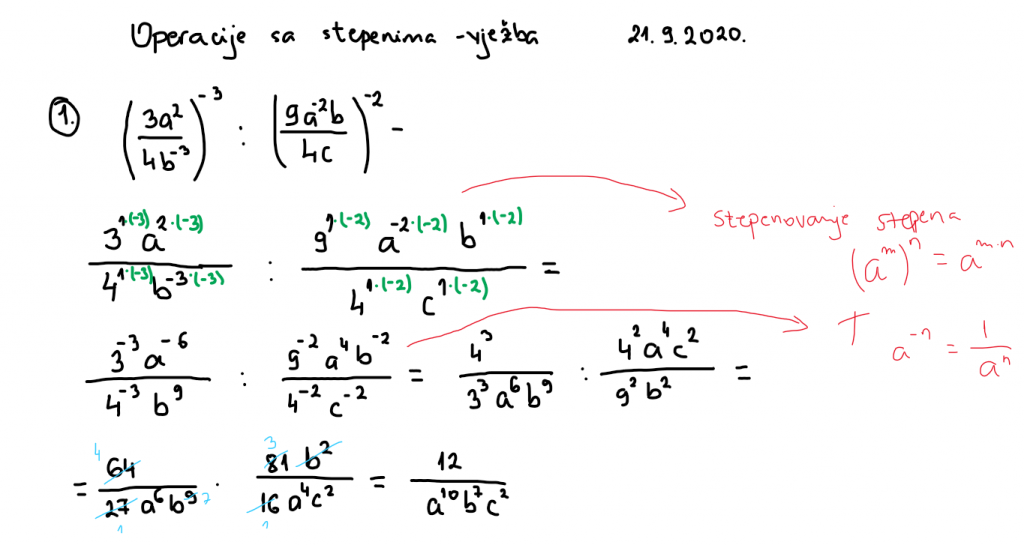 Operacije sa stepenima - vježba 21.9.2020.
1. (3a²/4b⁻³)⁻³ : (9a⁻²b/4c)⁻² -
3¹·⁽⁻³⁾a²·⁽⁻³⁾/4¹·⁽⁻³⁾b⁻³·⁽⁻³⁾ : 9¹·⁽⁻²⁾a⁻²·⁽⁻²⁾b¹·⁽⁻²⁾/4¹·⁽⁻²⁾c¹·⁽⁻²⁾ =
stepenovanje stepena
(aᵐ)ⁿ = aᵐ·ⁿ
3⁻³a⁻⁶/4⁻³b⁹ : 9⁻²a⁴b⁻²/4⁻²c⁻² = 4³/3³a⁶b⁹ : 4²a⁴c²/9²b² =
a⁻ⁿ = 1/aⁿ
= 4 64/27 1 a⁶b⁹ 7 · 3 81 b²/16 1 a⁴c² = 12/a¹⁰b⁷c²